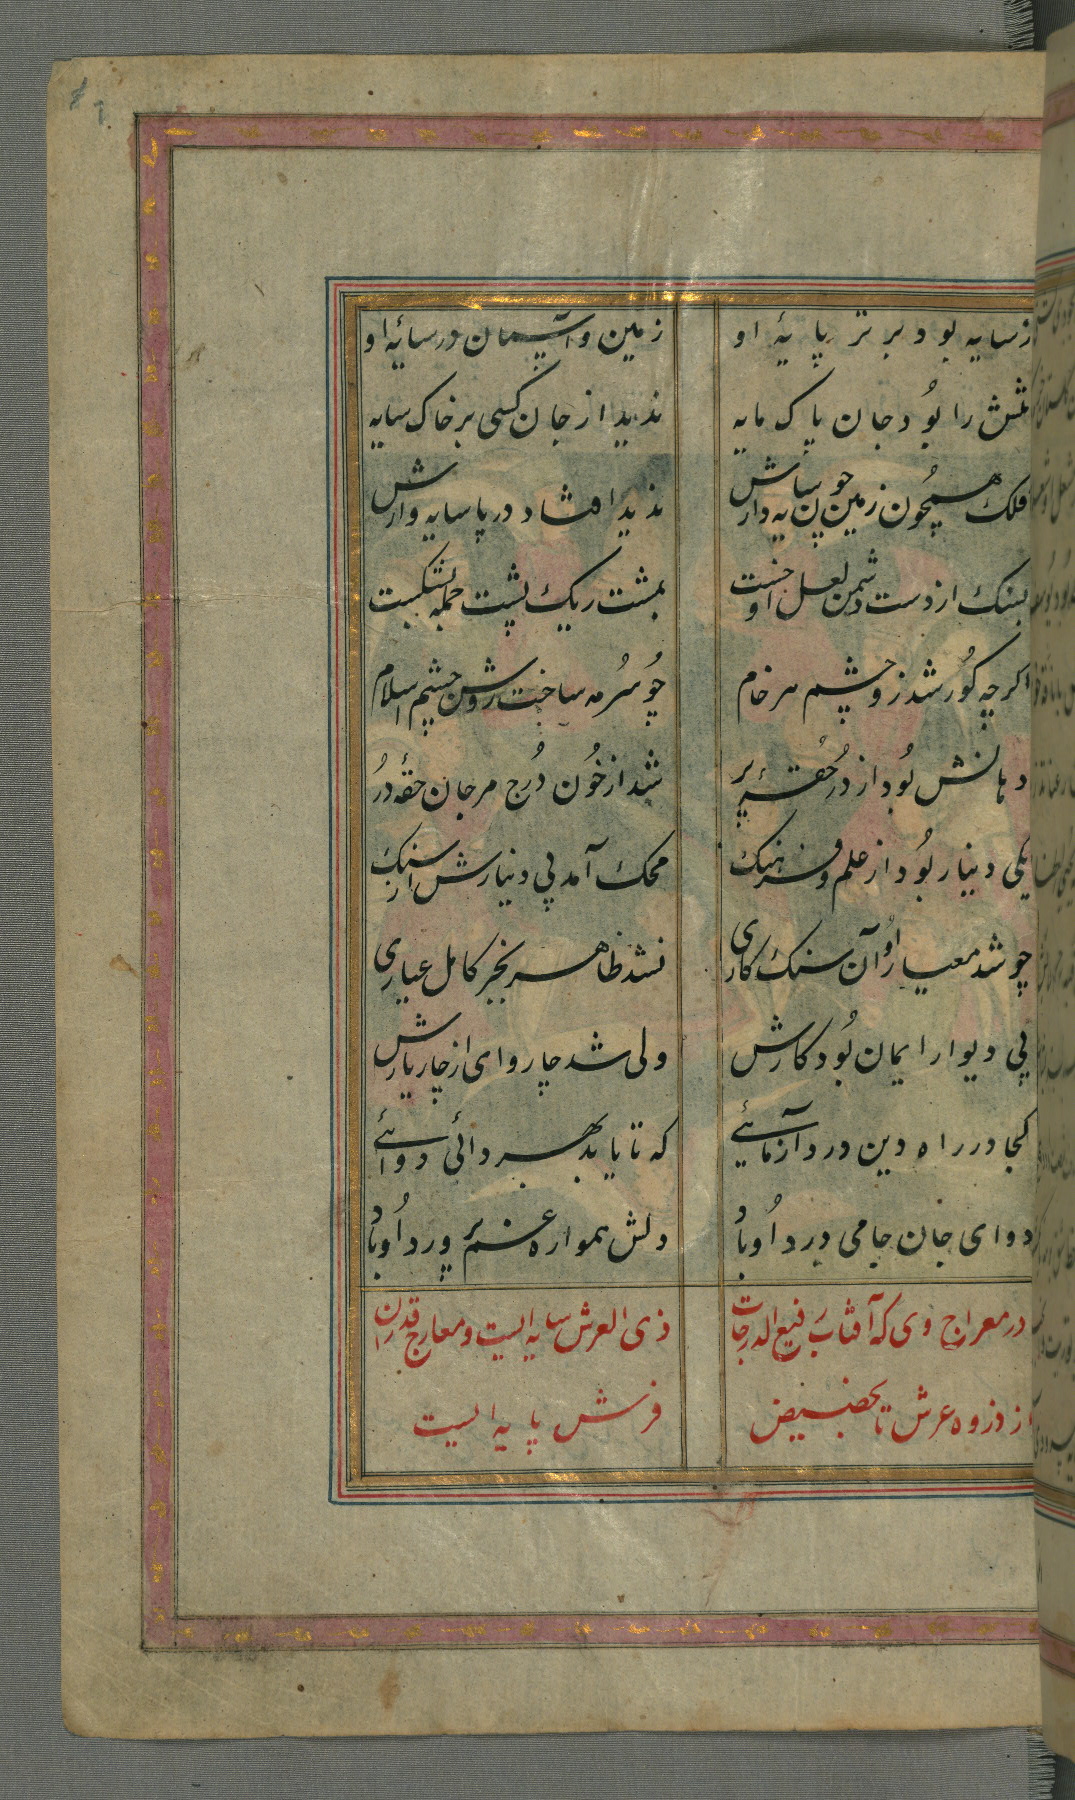 ز سایه بود برتر پایۀ او
زمین و آسمان در سایۀ او
تنش را بود جان پاک مایه
ندید از جان کسی بر خاک سایه
فلک همچون زمین چون سایه دارش
ندید افتاد در پا سایه وارش
بسنک از دست دشمن لعل او خست
بمشت ریک پشت جمله بشکست
اکرچه کور شد زو چشم هر خام
چو سرمه ساخت روشن چشم اسلام
دهانش بود از در حقۀ پر
شد از خون درج مرجان حقۀ در
یکی دینار بود از علم و فرهنک
محک آمد پی دینارش از سنک
چو شد معیار او آن سنک کاری
نشد ظاهر بجز کامل عیاری
پی دیوار ایمان بود کارش
ولی شد چار روای از چار یارش
کجا در راه دین درد آزمائیے
که تا یابد بهر دائی دوائے
دوای جان جامی درد او باد
دلش همواره غم پرورد او باد
در معراج وی که آفتاب رفیع الدرجات
ذی العرش سایه ایست و معارج قدر آن
از ذروه عرش تا بحضیض
فرش پایه ایست